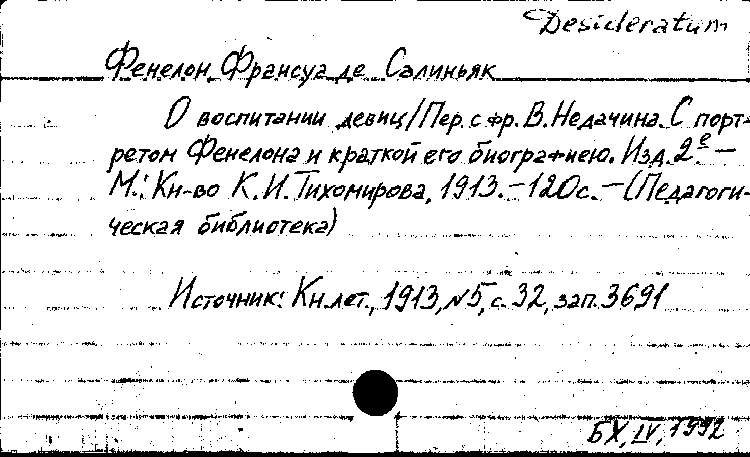 Desideratum
Фенелон, Франсуа де Салиньяк
О воспитании девиц/Пер. с фр. В. Недачина. С порт-
ретом Фенелона и краткой его биографиею. Изд. 2е –
М.: Кн-во К.И. Тихомирова, 1913. – 120с. – (Педагоги-
ческая библиотека)
Источник: Кн. лет., 1913, №5, с. 32, зап. 3691
БХ, IV, 1992